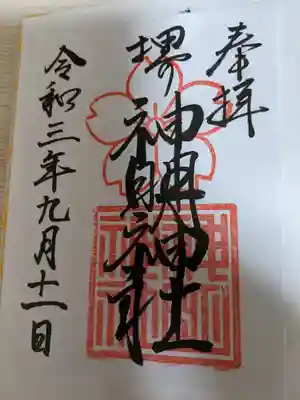 奉拝
堺 神明神社
令和三年九月十一日